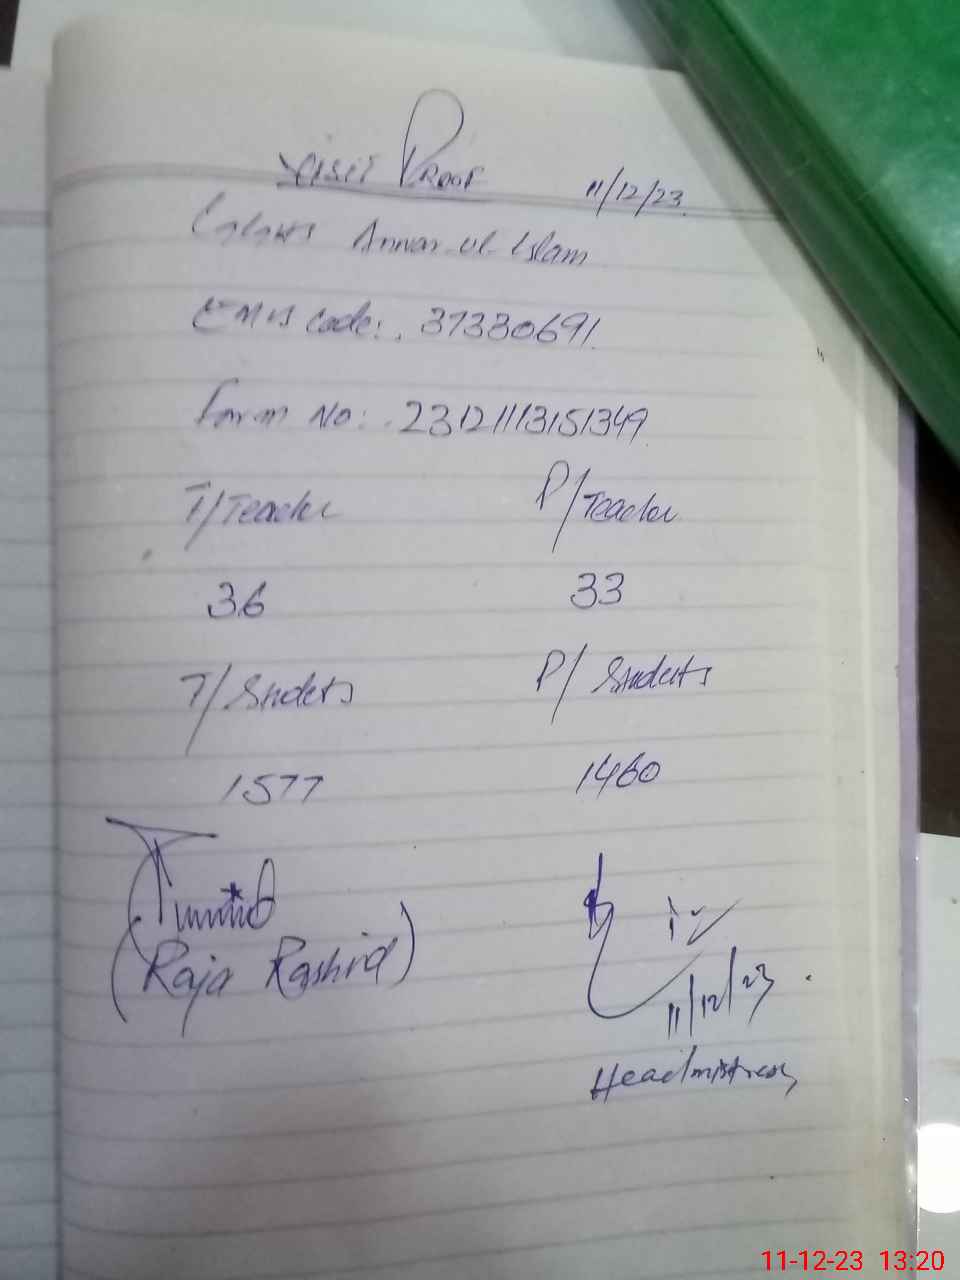 Visit Proof 11/12/23
Anwar-ul-Islam
EMIS Code: 37330691
Form No: 23121113151349
T/Teacher P/Teacher
36 33
T/Students P/Students
1577 1460
(Raja Rashid)
11/12/23
Headmistress
11-12-23 13:20